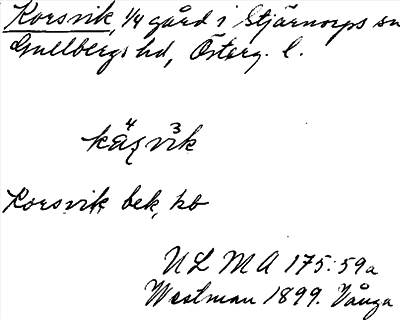 Korsvik, 1/4 gård i Stjärnorps sn
Gullbergs hd, Österg. l.
Korsvik bek, kb
ULMA 175:59a
Westman 1899. Vånga